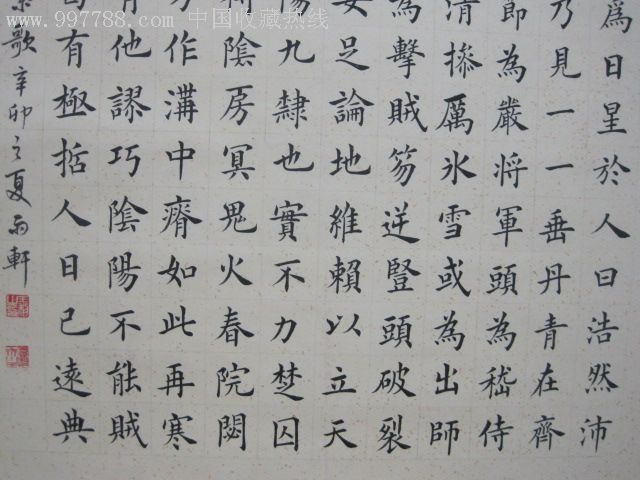 www.997788.com 中国收藏热线
爲日星於人曰浩然沛
乃見一一垂丹青在齊
即為嚴將軍頭為嵇侍
清操厲氷雪或為出師
為擊賊笏逆豎頭破裂
安足論地維賴以立天
陽九隸也實不力楚囚
陰房冥鬼火春院閟
作溝中瘠如此再寒
有他謬巧陰陽不能賊
曷有極括人日已遠典
歌辛卯之夏雨軒